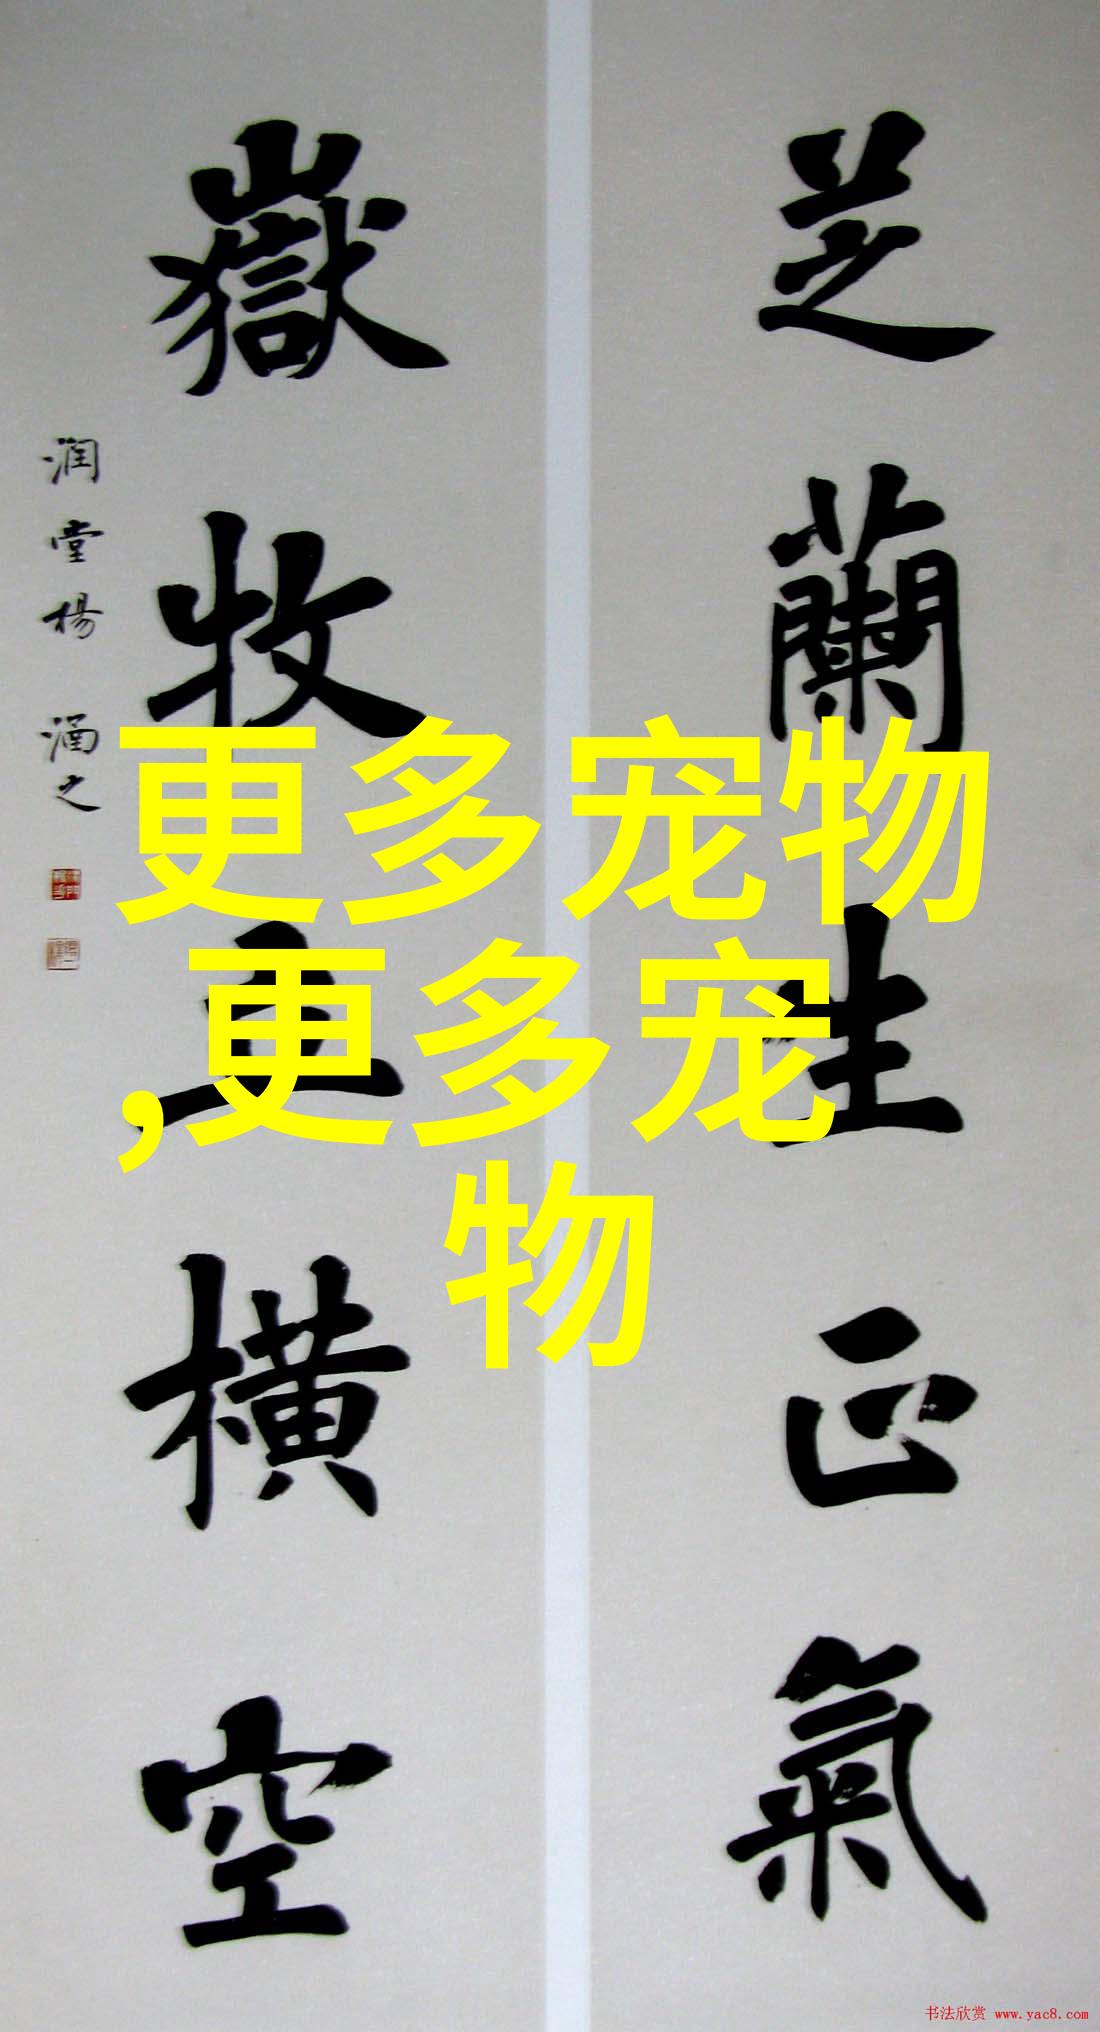 芝蘭生正氣
嶽牧立横空
润堂楊涵之
更多宠物
,更多宠
物
书法欣赏 www.yac8.com